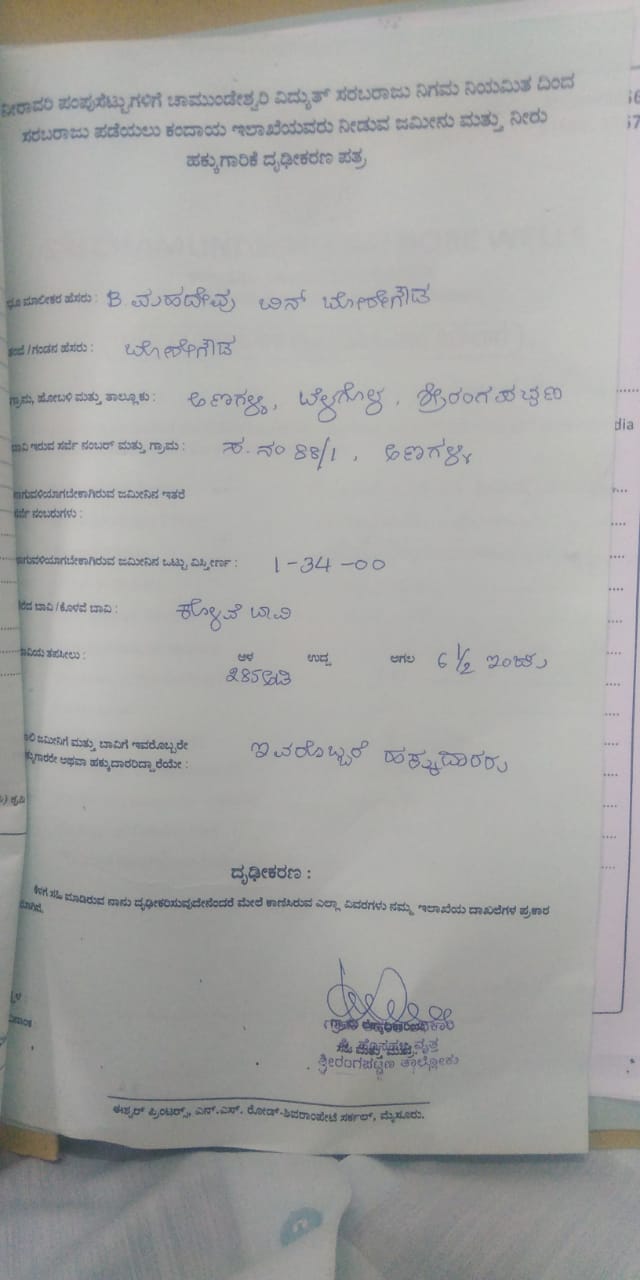 ನೀರಾವರಿ ಪಂಪುಸೆಟ್ಟುಗಳಿಗೆ ಚಾಮುಂಡೇಶ್ವರಿ ವಿದ್ಯುತ್ ಸರಬರಾಜು ನಿಗಮ ನಿಯಮಿತ ದಿಂದ
ಸರಬರಾಜು ಪಡೆಯಲು ಕಂದಾಯ ಇಲಾಖೆಯವರು ನೀಡುವ ಜಮೀನು ಮತ್ತು ನೀರು
ಹಕ್ಕುಗಾರಿಕೆ ದೃಢೀಕರಣ ಪತ್ರ
ಮಾಲೀಕರ ಹೆಸರು : B ಮಹದೇವು ಬಿನ್ ಬೋರೇಗೌಡ
/ಗಂಡನ ಹೆಸರು : ಬೋರೇಗೌಡ
ಗ್ರಾಮ, ಹೋಬಳಿ ಮತ್ತು ತಾಲ್ಲೂಕು : ಆಣಗಳ್ಳಿ, ಬೆಳಗೊಳ, ಶ್ರೀರಂಗಪಟ್ಟಣ
ಇರುವ ಸರ್ವೆ ನಂಬರ್ ಮತ್ತು ಗ್ರಾಮ : ಸ.ನಂ 88/1, ಆಣಗಳ್ಳಿ
ಜಮೀನಿನ ಇತರೆ
ಸರ್ವೆ ನಂಬರುಗಳು :
ಜಮೀನಿನ ಒಟ್ಟು ವಿಸ್ತೀರ್ಣ : 1-34-00
ಬಾವಿ/ಕೊಳವೆ ಬಾವಿ : ಕೊಳವೆ ಬಾವಿ
ತಪಸೀಲು : ಆಳ ಉದ್ದ ಅಗಲ 6 1/2 ಇಂಚು
285ಅಡಿ
ಜಮೀನಿಗೆ ಮತ್ತು ಬಾವಿಗೆ ಇವರೊಬ್ಬರೇ
ಅಥವಾ ಹಕ್ಕುದಾರರಿದ್ದಾರೆಯೇ : ಇವರೊಬ್ಬರೆ ಹಕ್ಕುದಾರರು
ದೃಢೀಕರಣ :
ಕೆಳಗೆ ಸಹಿ ಮಾಡಿರುವ ನಾನು ದೃಢೀಕರಿಸುವುದೇನೆಂದರೆ ಮೇಲೆ ಕಾಣಿಸಿರುವ ಎಲ್ಲಾ ವಿವರಗಳು ನಮ್ಮ ಇಲಾಖೆಯ ದಾಖಲೆಗಳ ಪ್ರಕಾರ
ವೃತ್ತ
ಶ್ರೀರಂಗಪಟ್ಟಣ ತಾಲ್ಲೋಕು
ಈಶ್ವರ್ ಪ್ರಿಂಟರ್ಸ್, ಎನ್.ಎಸ್. ರೋಡ್-ಶಿವರಾಂಪೇಟೆ ಸರ್ಕಲ್, ಮೈಸೂರು.